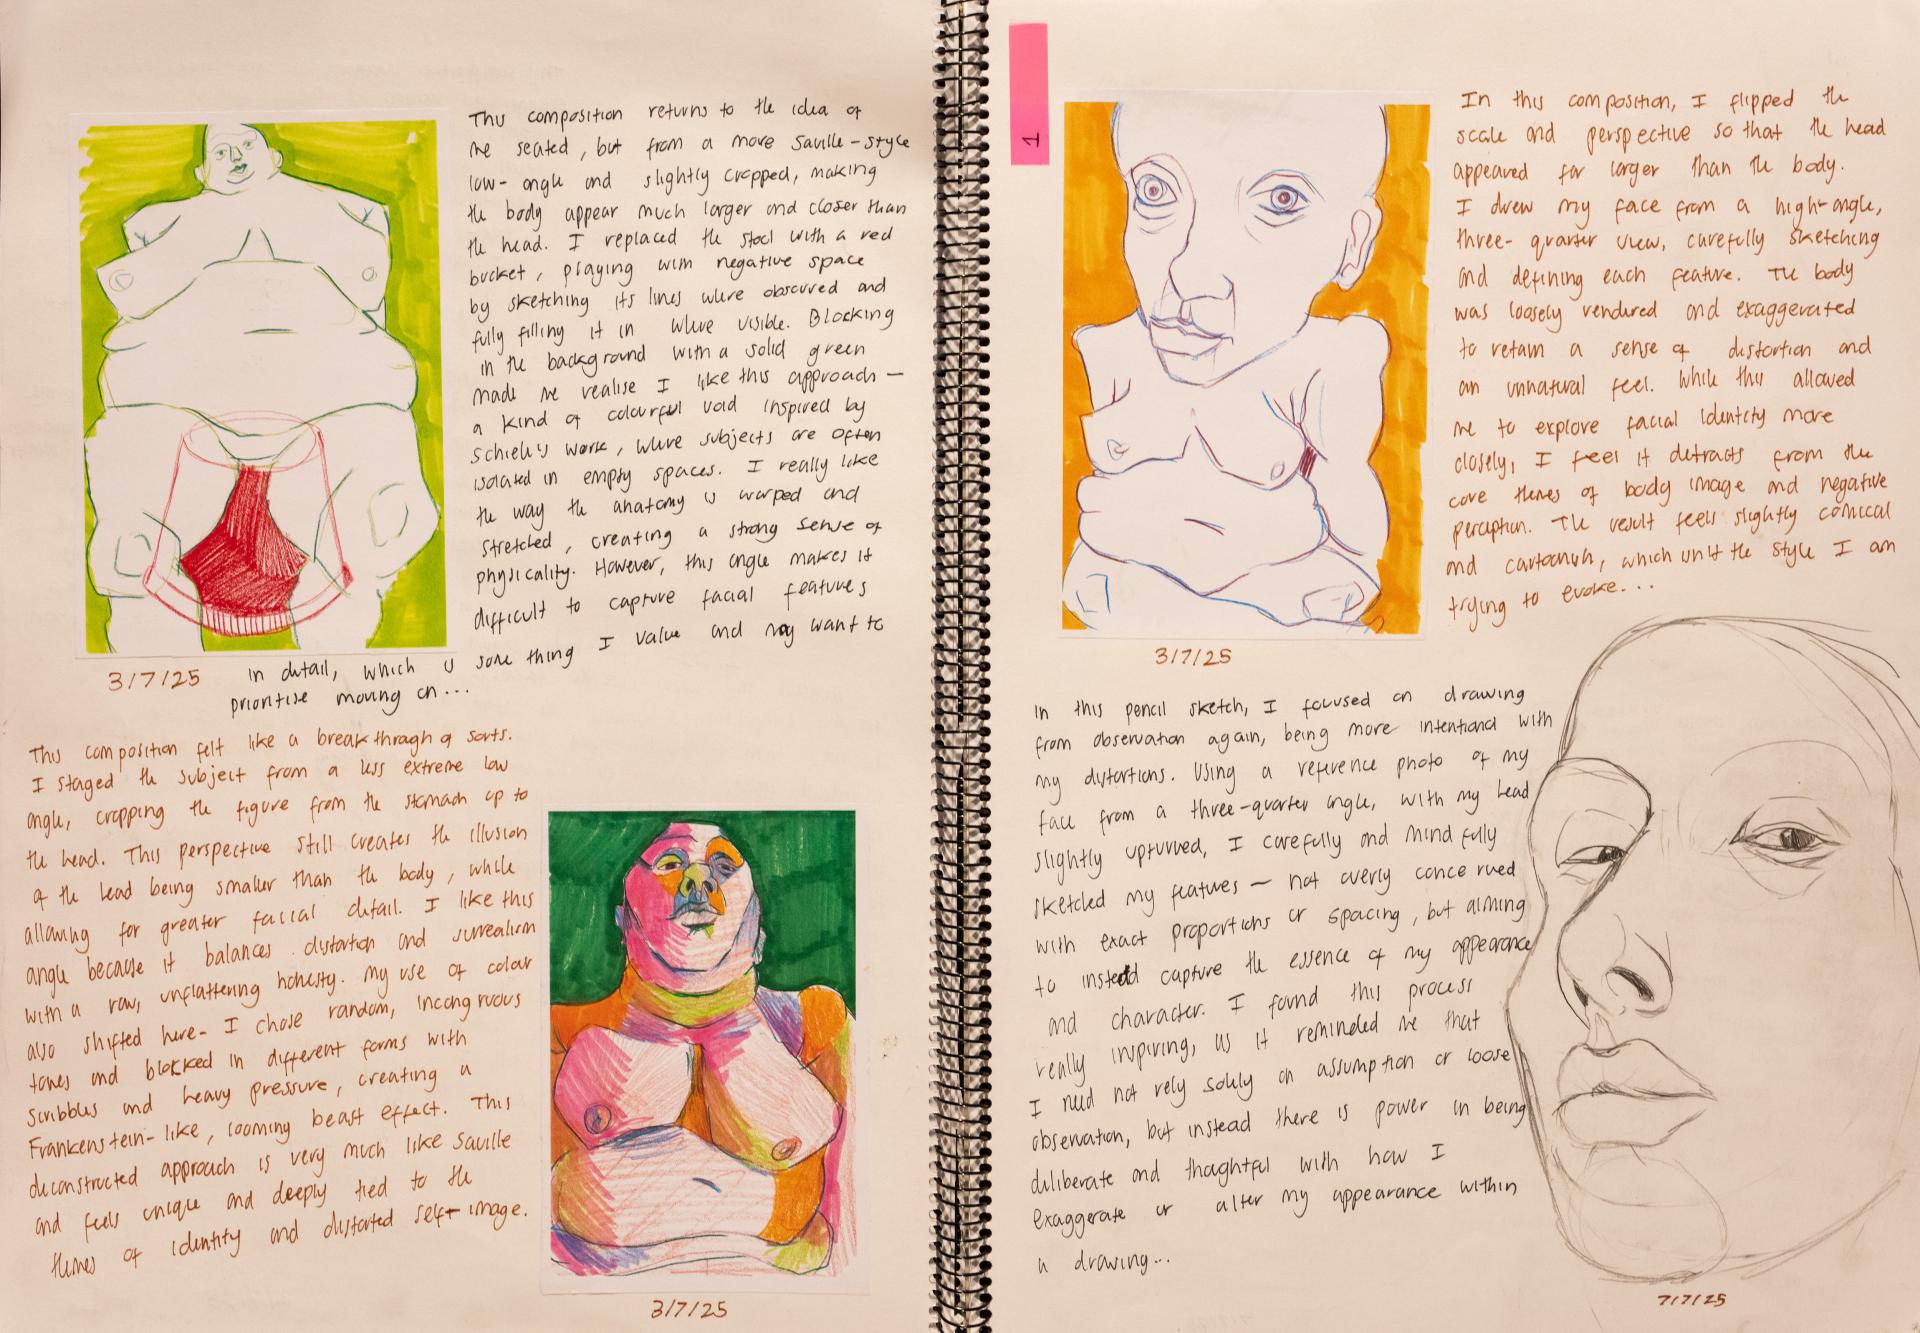 This composition returns to the idea of
me seated, but from a more Saville-style
low-angle and slightly cropped, making
the body appear much larger and closer than
the head. I replaced the stool with a red
bucket, playing with negative space
by sketching its lines where obscured and
fully filling it in where visible. Blocking
in the background with a solid green
made me realise I like this approach —
a kind of colourful void inspired by
Schiele's work, where subjects are often
isolated in empty spaces. I really like
the way the anatomy is warped and
stretched, creating a strong sense of
physicality. However, this angle makes it
difficult to capture facial features
in detail, which is something I value and may want to
prioritise moving on...
3/7/25
This composition felt like a breakthragh of sorts.
I staged the subject from a less extreme low
angle, cropping the figure from the stomach up to
the head. This perspective still creates the illusion
of the head being smaller than the body, while
allowing for greater facial detail. I like this
angle because it balances distortion and surrealism
with a raw, unflattering honesty. My use of colour
also shifted here- I chose random, incongruous
tones and blocked in different forms with
scribbles and heavy pressure, creating a
Frankenstein-like, looming beast effect. This
deconstructed approach is very much like Saville
and feels unique and deeply tied to the
themes of identity and distorted self-image.
3/7/25
1
In this composition, I flipped the
scale and perspective so that the head
appeared far larger than the body.
I drew my face from a high-angle,
three-quarter view, carefully sketching
and defining each feature. The body
was loosely rendered and exaggerated
to retain a sense of distortion and
an unnatural feel. While this allowed
me to explore facial identity more
closely, I feel it detracts from the
core themes of body image and negative
perception. The result feels slightly comical
and cartoonish, which isn't the style I am
trying to evoke...
3/7/25
In this pencil sketch, I focused on drawing
from observation again, being more intentional with
my distortions. Using a reference photo of my
face from a three-quarter angle, with my head
slightly upturned, I carefully and mindfully
sketched my features — not overly concerned
with exact proportions or spacing, but aiming
to instead capture the essence of my appearance
and character. I found this process
really inspiring, as it reminded me that
I need not rely solely on assumption or loose
observation, but instead there is power in being
deliberate and thoughtful with how I
exaggerate or alter my appearance within
a drawing...
7/7/25